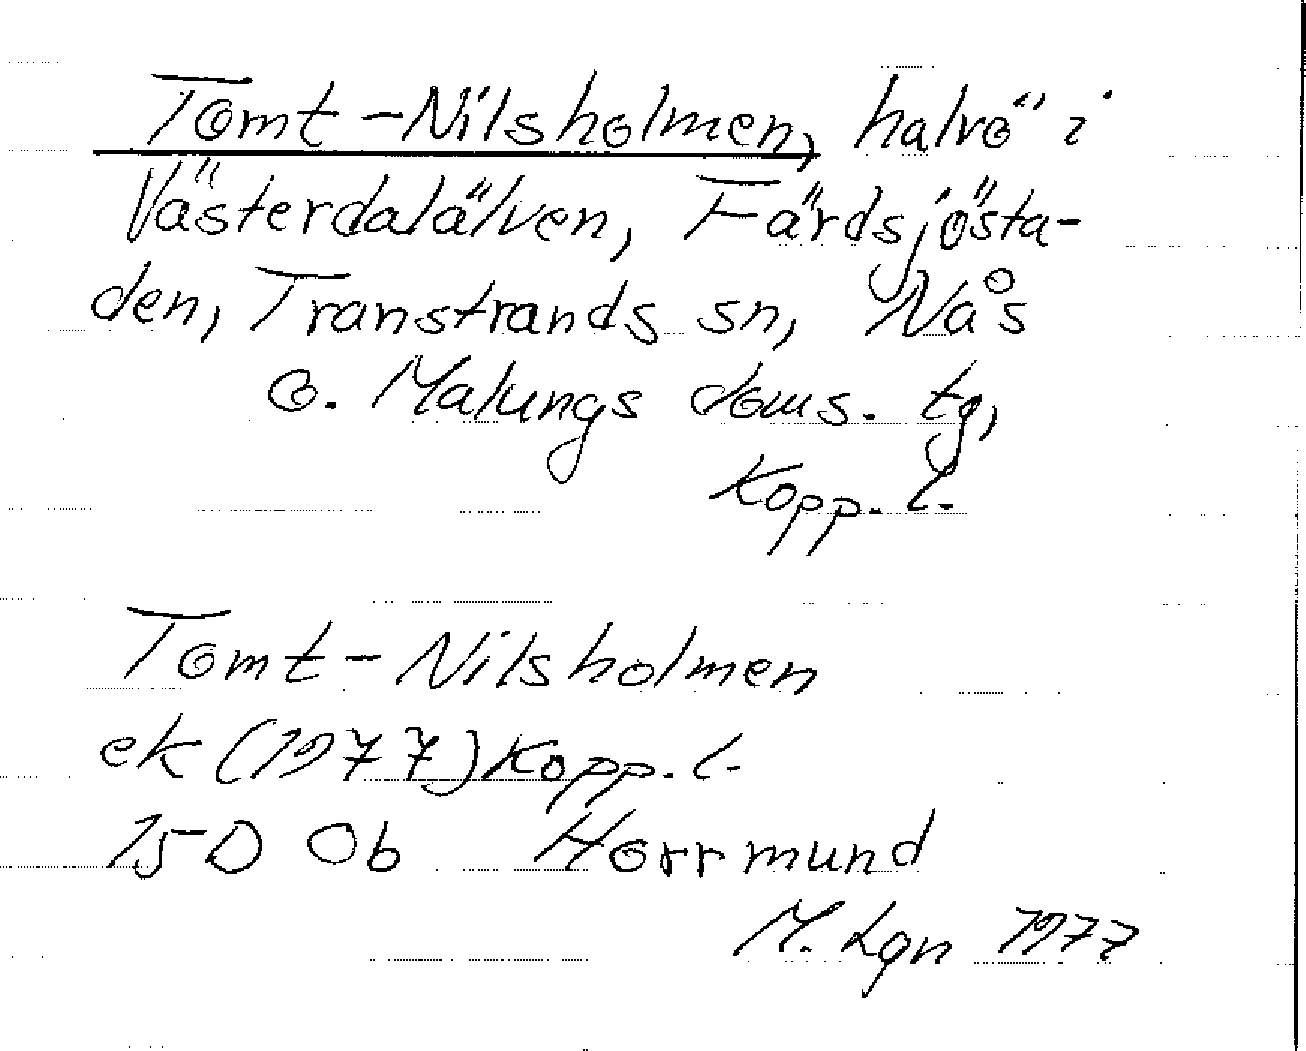 Tomt-Nilsholmen, halvö i
Västerdalälven, Färdsjösta-
den, Transtrands sn, Nås
o. Malungs doms. tg,
Kopp. l.
Tomt-Nilsholmen
ek (1977) Kopp. l.
15D 0b Horrmund
M. Lgn 1977